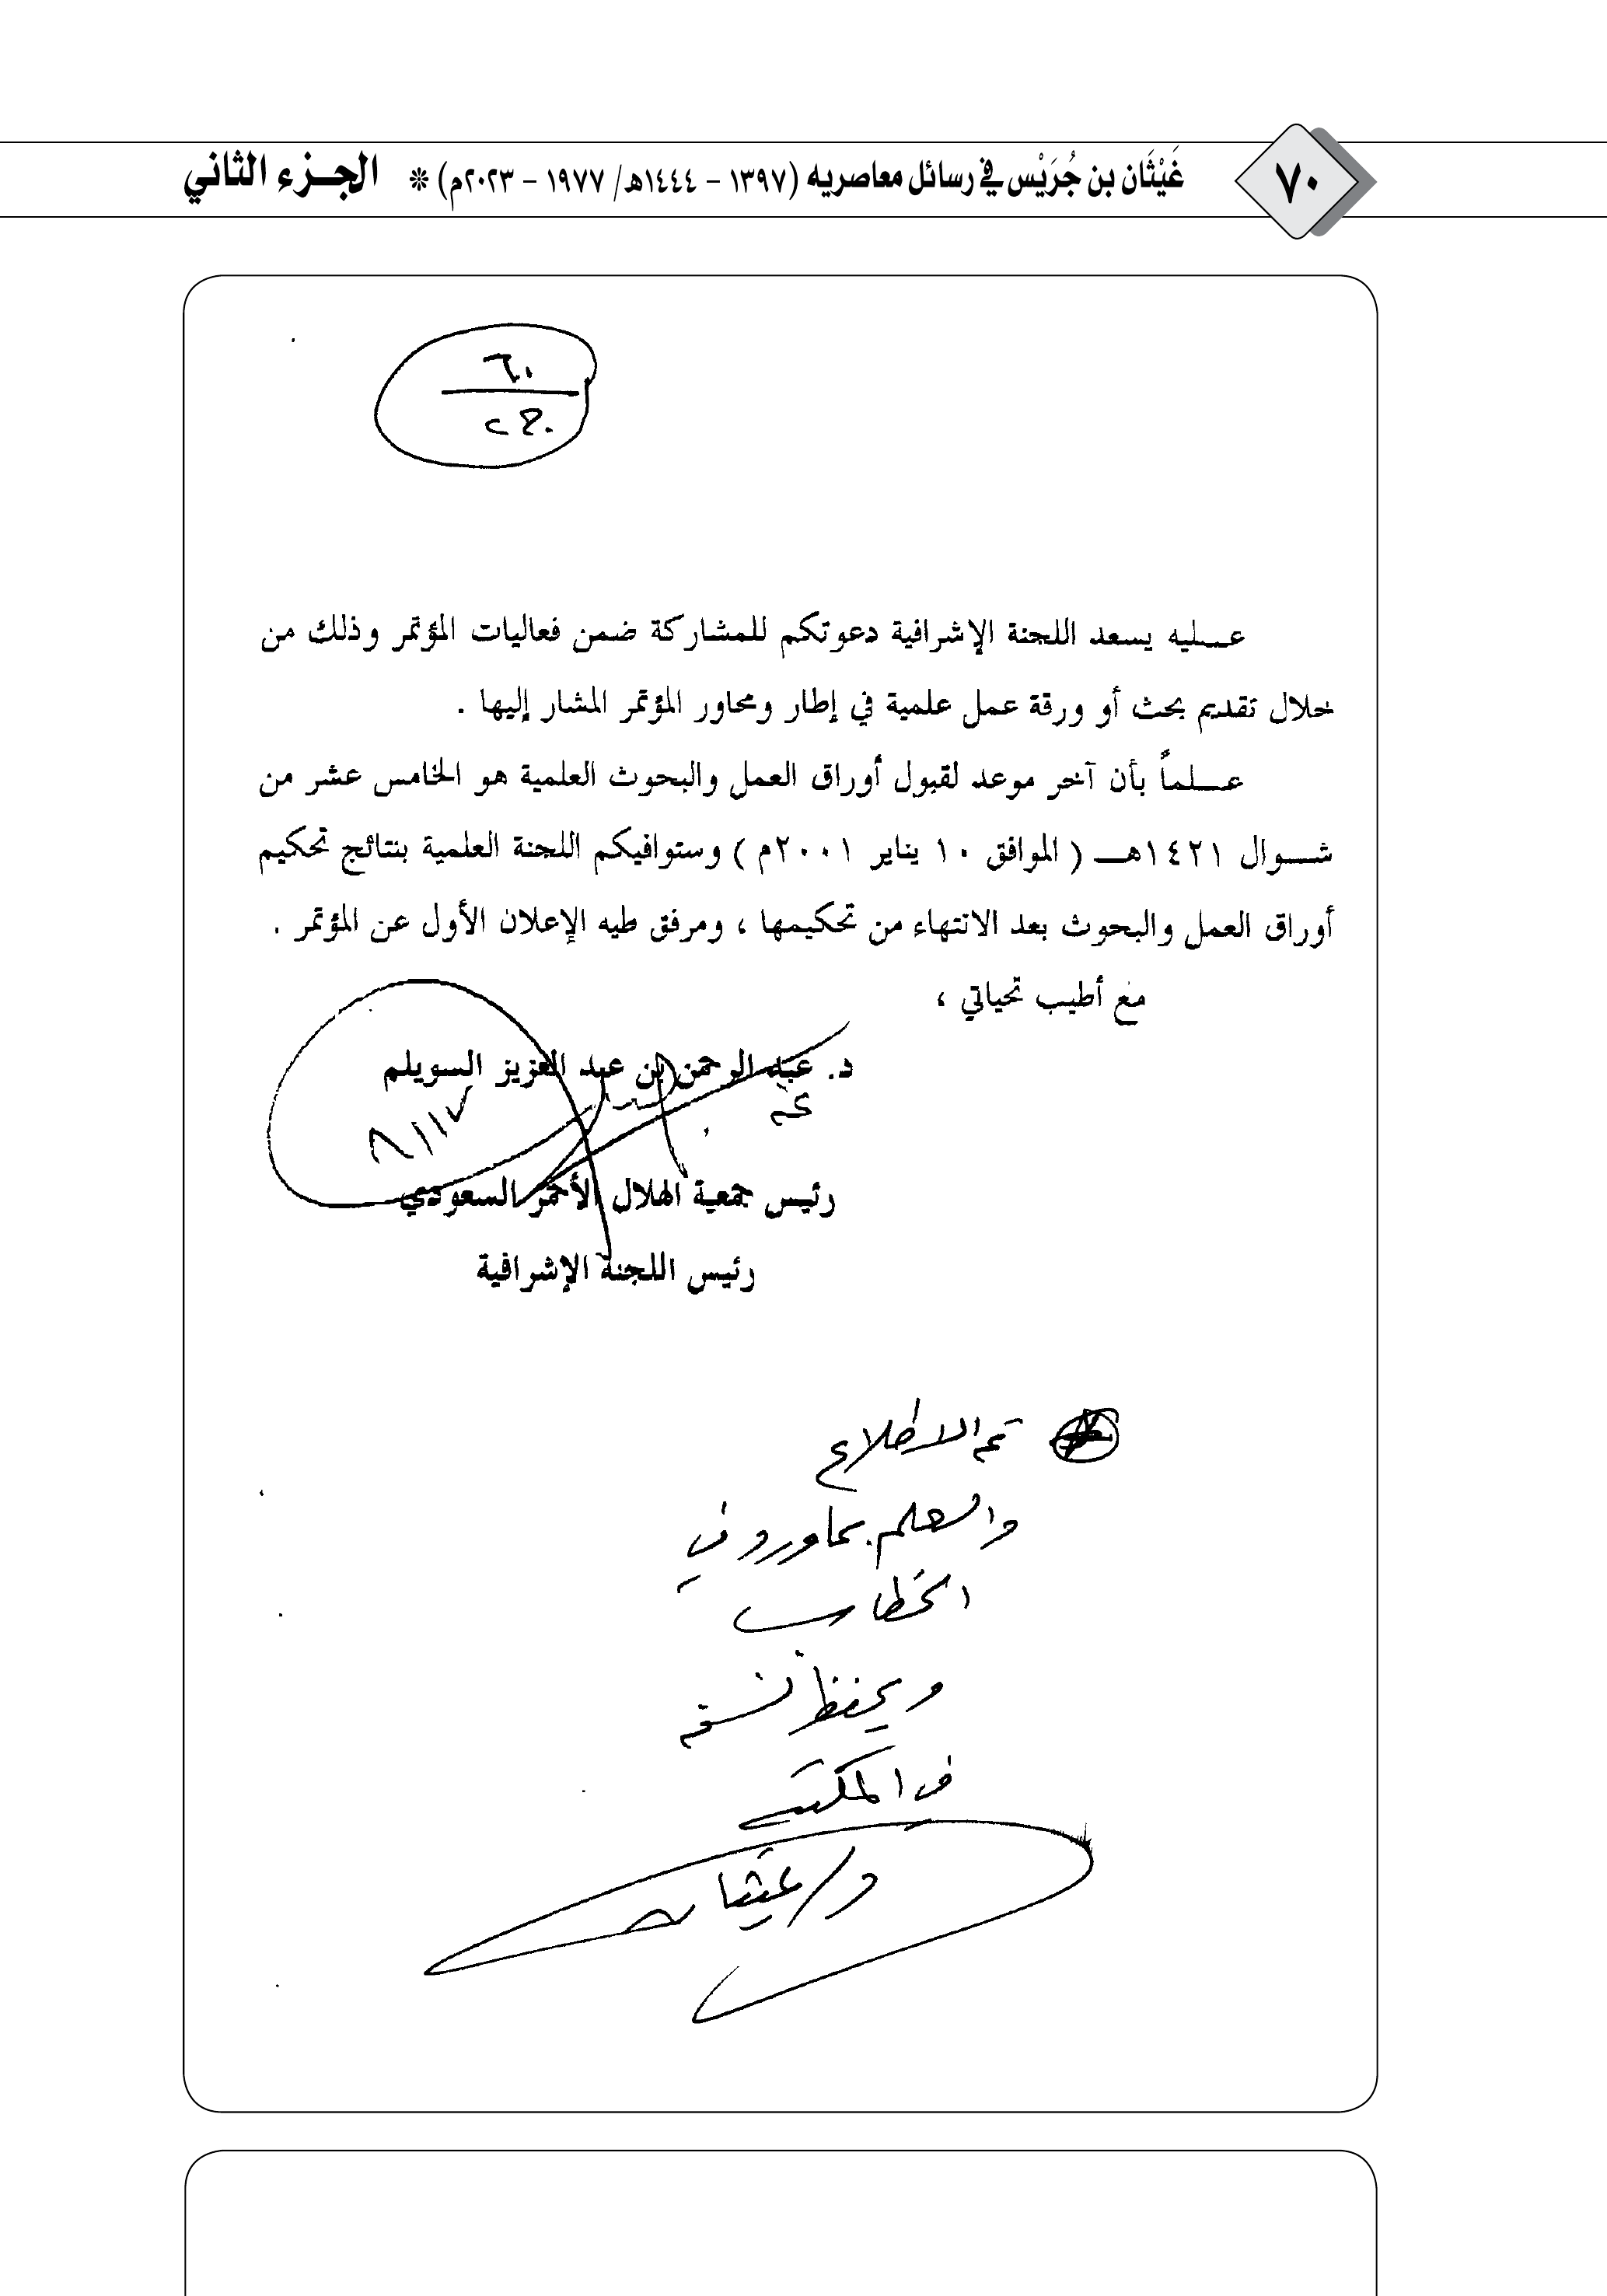 ٧٠
غَيْثَان بن جُرَيْس في رسائل معاصريه (١٣٩٧ - ١٤٤٤هـ/ ١٩٧٧ - ٢٠٢٣م) * الجزء الثاني
عليه يسعد اللجنة الإشرافية دعوتكم للمشاركة ضمن فعاليات المؤتمر وذلك من
خلال تقديم بحث أو ورقة عمل علمية في إطار ومحاور المؤتمر المشار إليها .
علماً بأن آخر موعد لقبول أوراق العمل والبحوث العلمية هو الخامس عشر من
شوال ١٤٢١هـ ( الموافق ١٠ يناير ٢٠٠١م ) وستوافيكم اللجنة العلمية بنتائج تحكيم
أوراق العمل والبحوث بعد الانتهاء من تحكيمها ، ومرفق طيه الإعلان الأول عن المؤتمر .
مع أطيب تحياتي ،
د. عبد الرحمن بن عبد العزيز السويلم
رئيس جمعية الهلال الأحمر السعودي
رئيس اللجنة الإشرافية
تم الاطلاع
والعلم بما ورد في
الخطاب
ويحفظ نسخة
في المكتب
د/غيثان